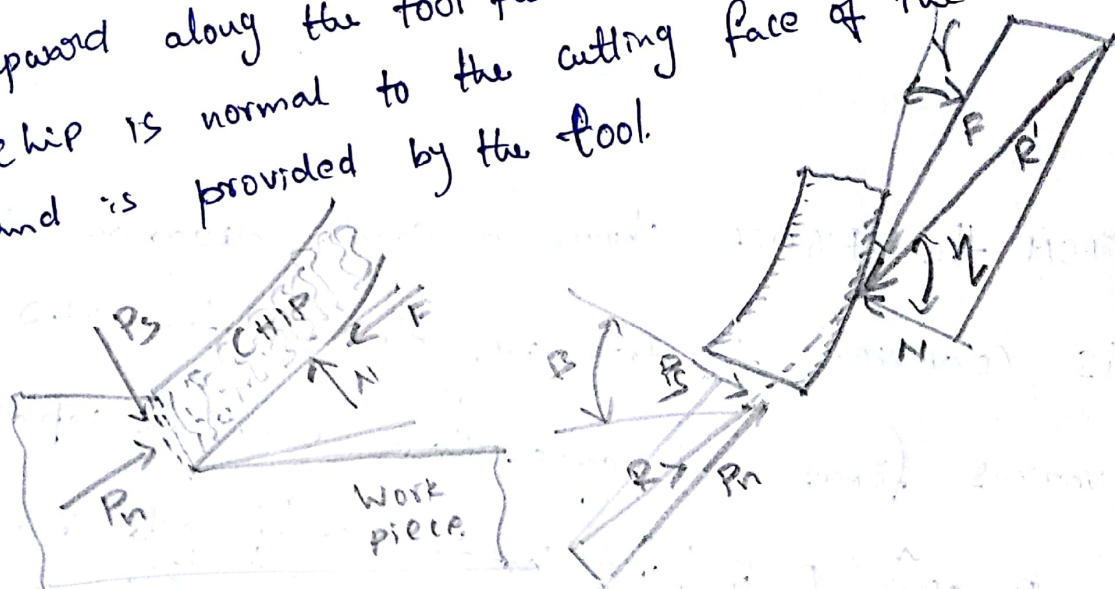 upward along the tool
chip is normal to the cutting face of the
and is provided by the tool.
γ
F
R'
η
N
Ps
CHIP
F
N
Pn
Work
piece.
β
Ps
R
Pn